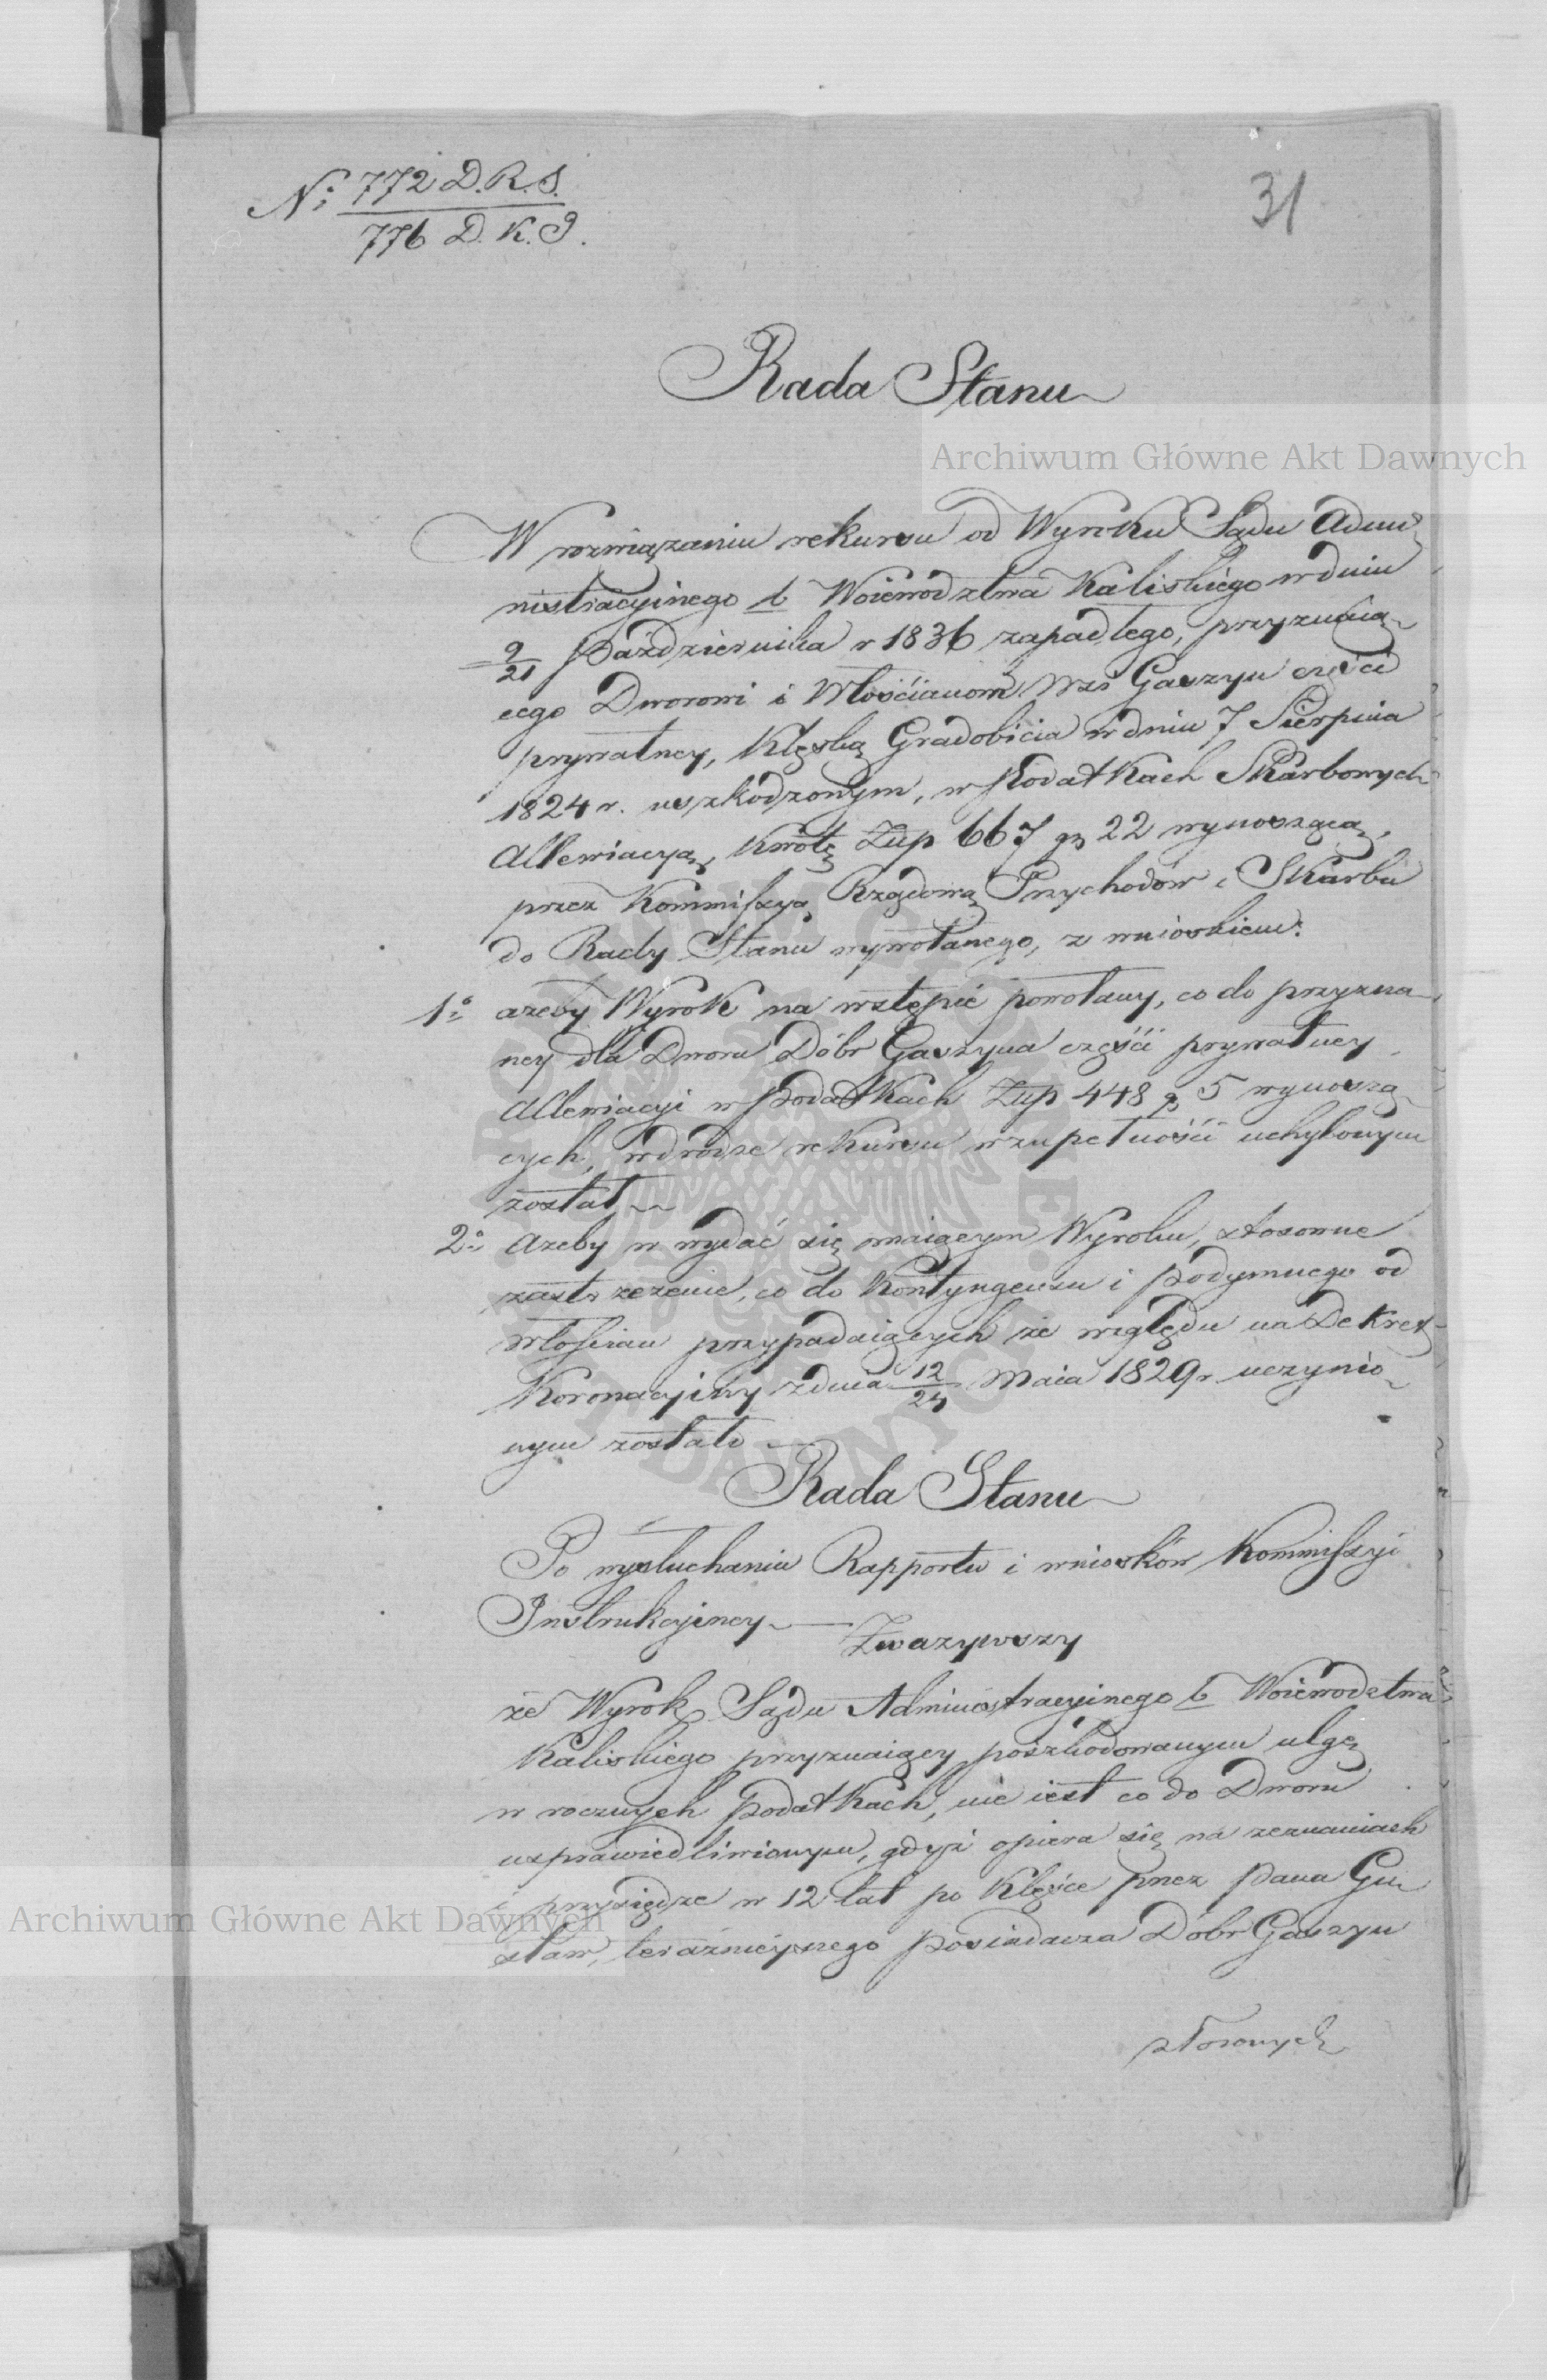 No 772 D.R.S.
776 D.K.J.
31
Rada Stanu
Archiwum Główne Akt Dawnych
W rozwiązaniu rekursu od Wyroku Sądu Admi
nistracyinego b Woiewodztwa Kaliskiego w dniu
9/21 Października r 1836 zapadłego, przyznaią
cego Dworowi i Włościanom Wsi Gaszyn części
prywatney, Klęską Gradobicia w dniu 7 Sierpnia
1824 r. uszkodzonym, w podatkach Skarbowych
Allewiacyą, Kwotę Złp 667 gr 22 wynoszącą,
przez Kommissyą Rządową Przychodów i Skarbu
do Rady Stanu wywołanego, z wnioskiem:
1o ażeby Wyrok na wstępie powołany, co do przyzna
ney dla Dworu Dóbr Gaszyna części prywatney
Allewiacyi w podatkach Złp 448 gr 5 wynoszą
cych, w drodze rekursu w zupełności uchylonym
został
2o Ażeby w wydać się maiącym Wyroku, stosowne
zastrzeżenie, co do Kontyngensu i podymnego od
włościan przypadaiących ze względu na Dekret
Koronacyiny z dnia 12/24 Maia 1829 r uczynio
nym zostało
Rada Stanu
Po wysłuchaniu Rapportu i wniosków Kommissyi
Instrukcyiney
Zważywszy
że Wyrok Sądu Administracyinego b Woiewodztwa
Kaliskiego przyznaiący poszkodowanym ulgę
w rocznych podatkach, nie iest co do Dworu
usprawiedliwionym, gdyż opiera się na zeznaniach
i przysiędze w 12 lat po Klęsce przez Pana
Archiwum Główne Akt Dawnych
teraznieyszego posiadacza Dóbr Gaszyn
złożonych